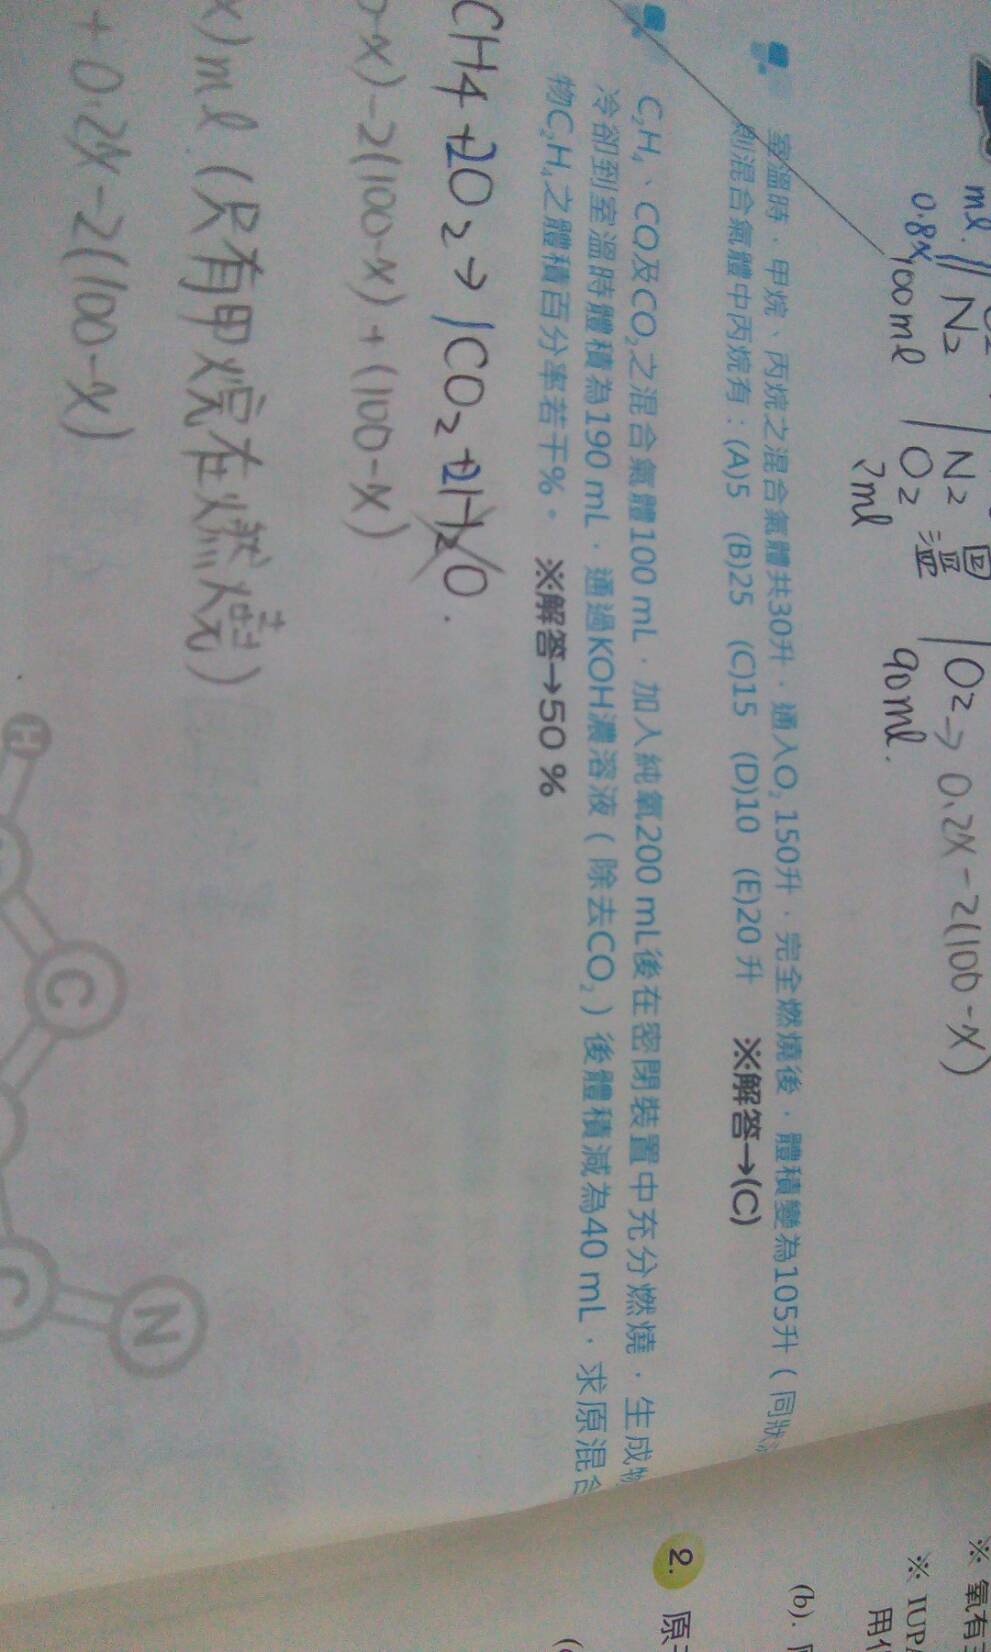 ml.
0.8x
N₂
100ml
N₂
O₂
?ml
O₂→ 0.2x-2(100-x)
90ml.
室溫時，甲烷、丙烷之混合氣體共30升，通入O₂ 150升，完全燃燒後，體積變為105升（同狀
則混合氣體中丙烷有：(A)5 (B)25 (C)15 (D)10 (E)20 升 ※解答→(C)
C₂H₄、CO及CO₂之混合氣體100 mL，加入純氧200 mL後在密閉裝置中充分燃燒，生成物
冷卻到室溫時體積為190 mL，通過KOH濃溶液（除去CO₂）後體積減為40 mL，求原混合
物C₂H₄之體積百分率若干%。 ※解答→50 %
CH4+2O₂→1CO₂+2H₂O.
-x)-2(100-x)+(100-x)
x)ml (只有甲烷在燃燒)
+0.2x-2(100-x)
H
C
C
N
2. 原
(b).
※ IUP
用
※ 氧有